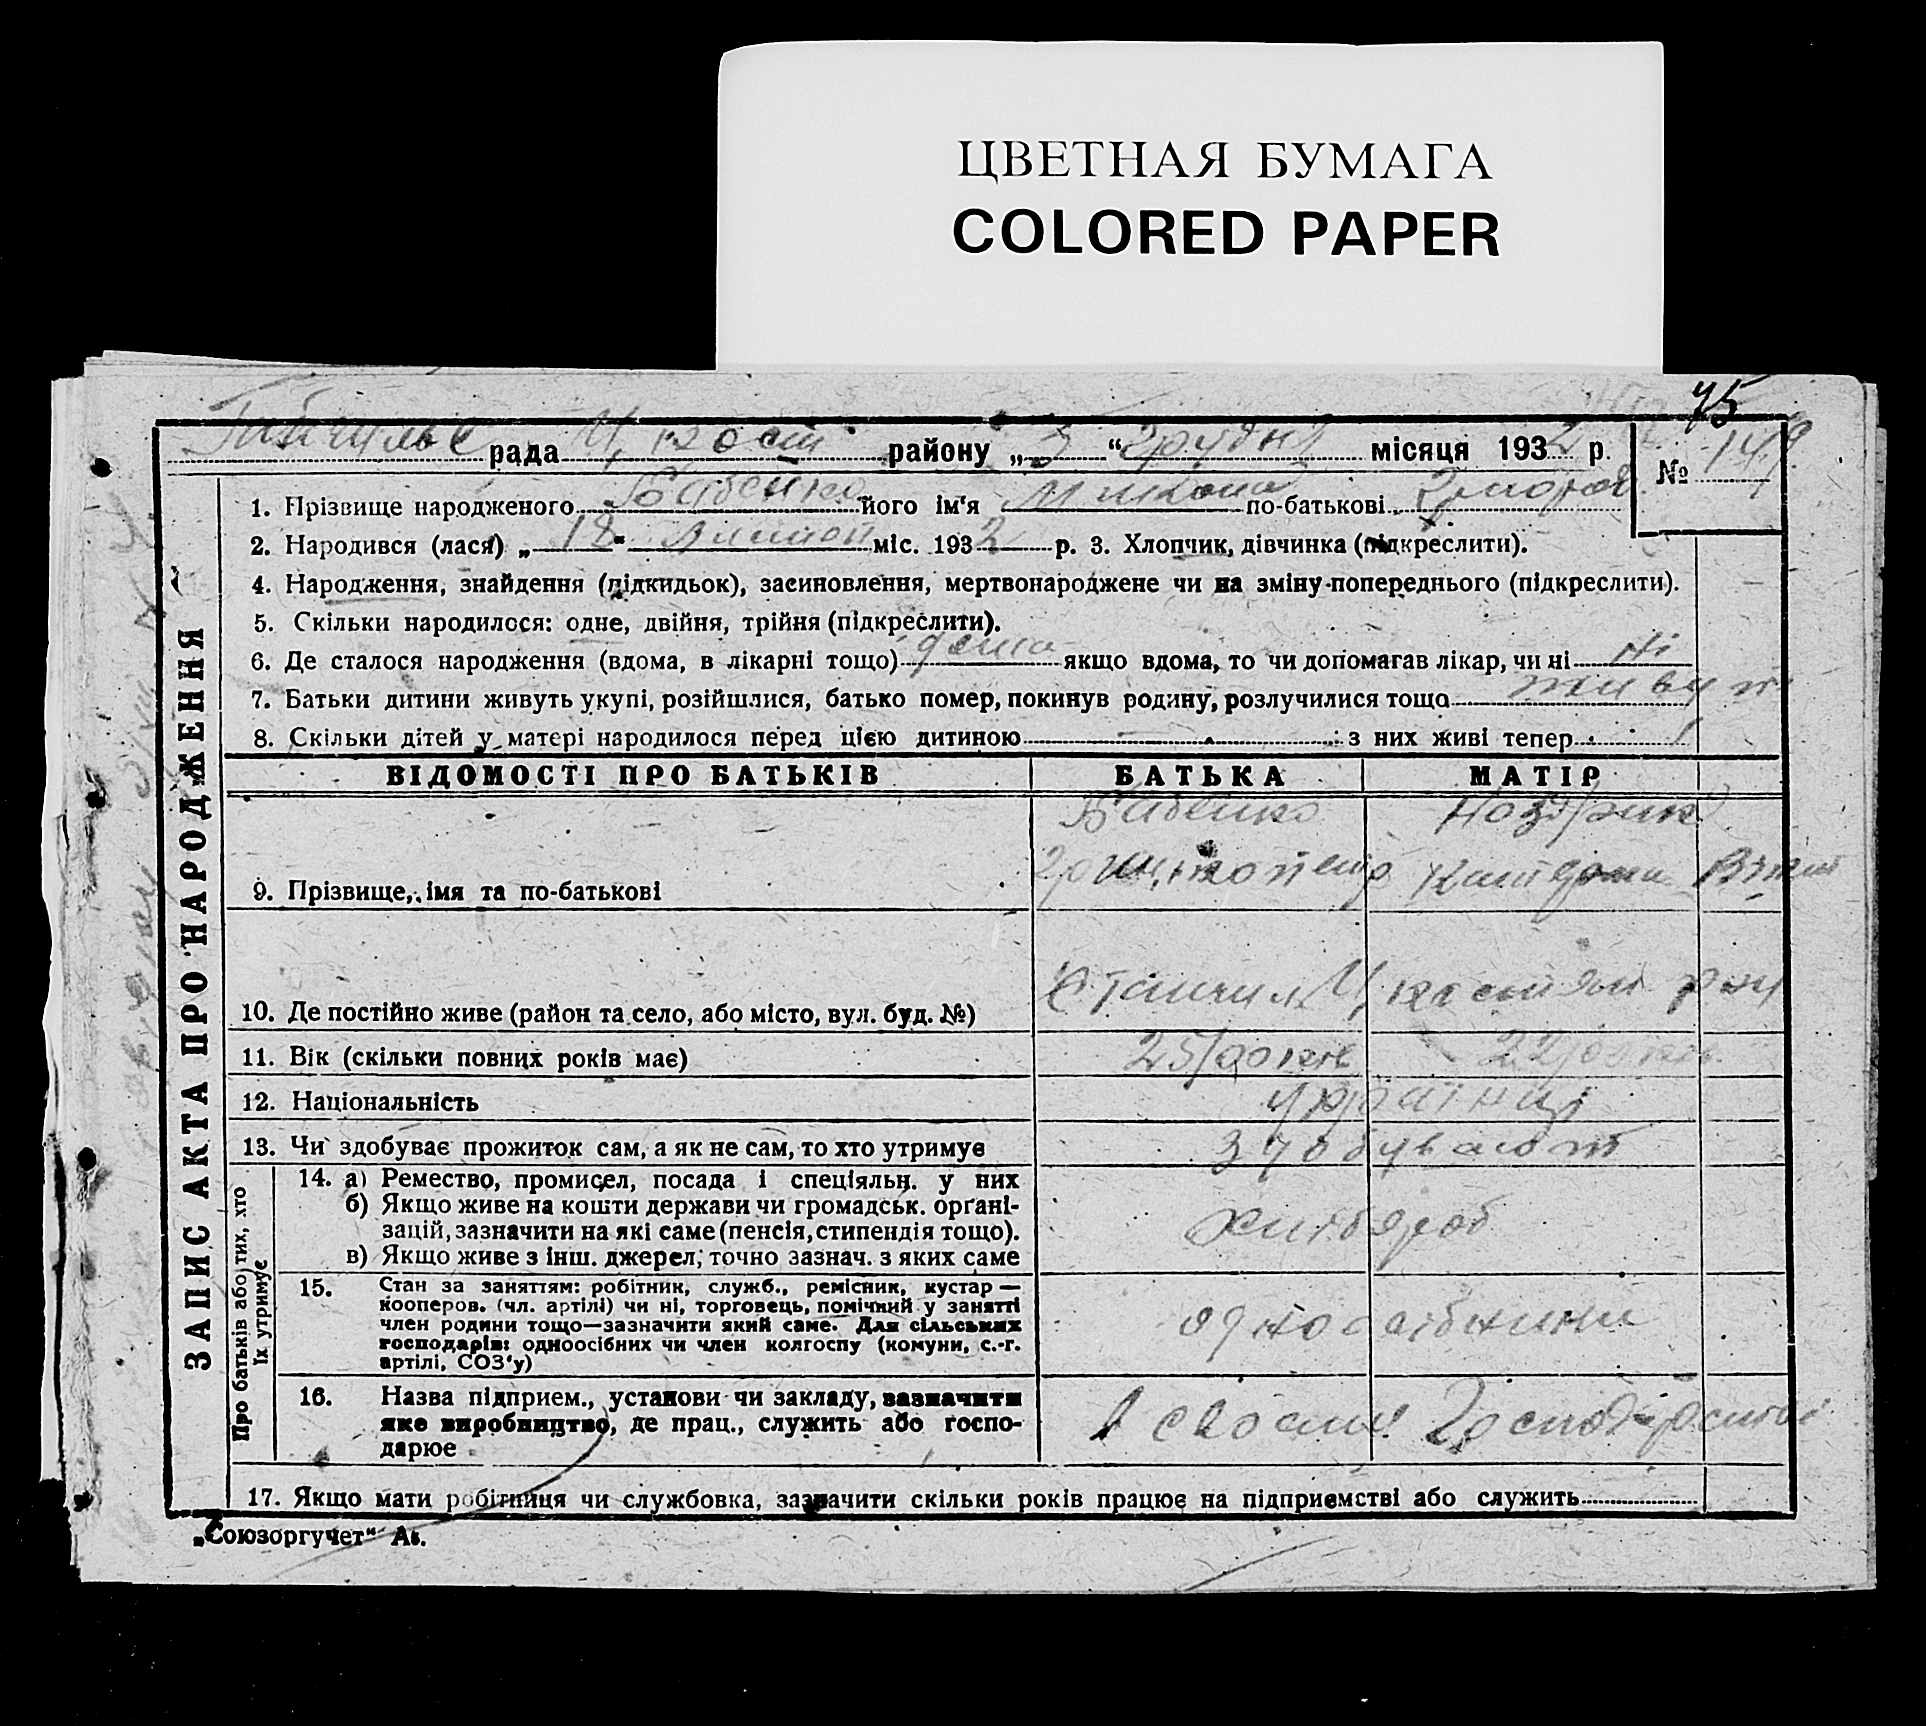 ЦВЕТНАЯ БУМАГА
COLORED PAPER
75
рада район у „ 3 “ Грудня місяця 1932 р.
№ 149
1. Прізвище народженого Бабенко його ім'я Микола по-батькові
2. Народився (лася) „ 18 “ міс. 1932 р. 3. Хлопчик, дівчинка (підкреслити).
4. Народження, знайдення (підкидьок), засиновлення, мертвонароджене чи на зміну попереднього (підкреслити).
5. Скільки народилося: одне, двійня, трійня (підкреслити).
6. Де сталося народження (вдома, в лікарні тощо) дома якщо вдома, то чи допомагав лікар, чи ні ні
7. Батьки дитини живуть укупі, розійшлися, батько помер, покинув родину, розлучилися тощо живут
8. Скільки дітей у матері народилося перед цією дитиною з них живі тепер
ВІДОМОСТІ ПРО БАТЬКІВ БАТЬКА МАТІР
9. Прізвище, імя та по-батькові Бабенко
10. Де постійно живе (район та село, або місто, вул. буд. №)
11. Вік (скільки повних років має) 25 22
12. Національність українці
13. Чи здобуває прожиток сам, а як не сам, то хто утримує здобувают
ЗАПИС АКТА ПРО НАРОДЖЕННЯ
Про батьків або тих, хто
їх утримує
14. а) Ремество, промисел, посада і спеціяльн. у них
б) Якщо живе на кошти держави чи громадськ. органі-
зацій, зазначити на які саме (пенсія, стипендія тощо).
в) Якщо живе з інш. джерел, точно зазнач. з яких саме
хлібороб
15. Стан за заняттям: робітник, служб., ремісник, кустар —
кооперов. (чл. артілі) чи ні, торговець, помічний у занятті
член родини тощо—зазначити який саме. Для сільських
господарів: одноосібних чи член колгоспу (комуни, с.-г.
артілі, СОЗ'у)
одноосібники
16. Назва підприєм., установи чи закладу, вазначити
яке виробництво, де прац., служить або госпо-
дарює
в своєму господарстві
17. Якщо мати робітниця чи службовка, зазначити скільки років працює на підприємстві або служить
„Союзоргучет“ Ав.